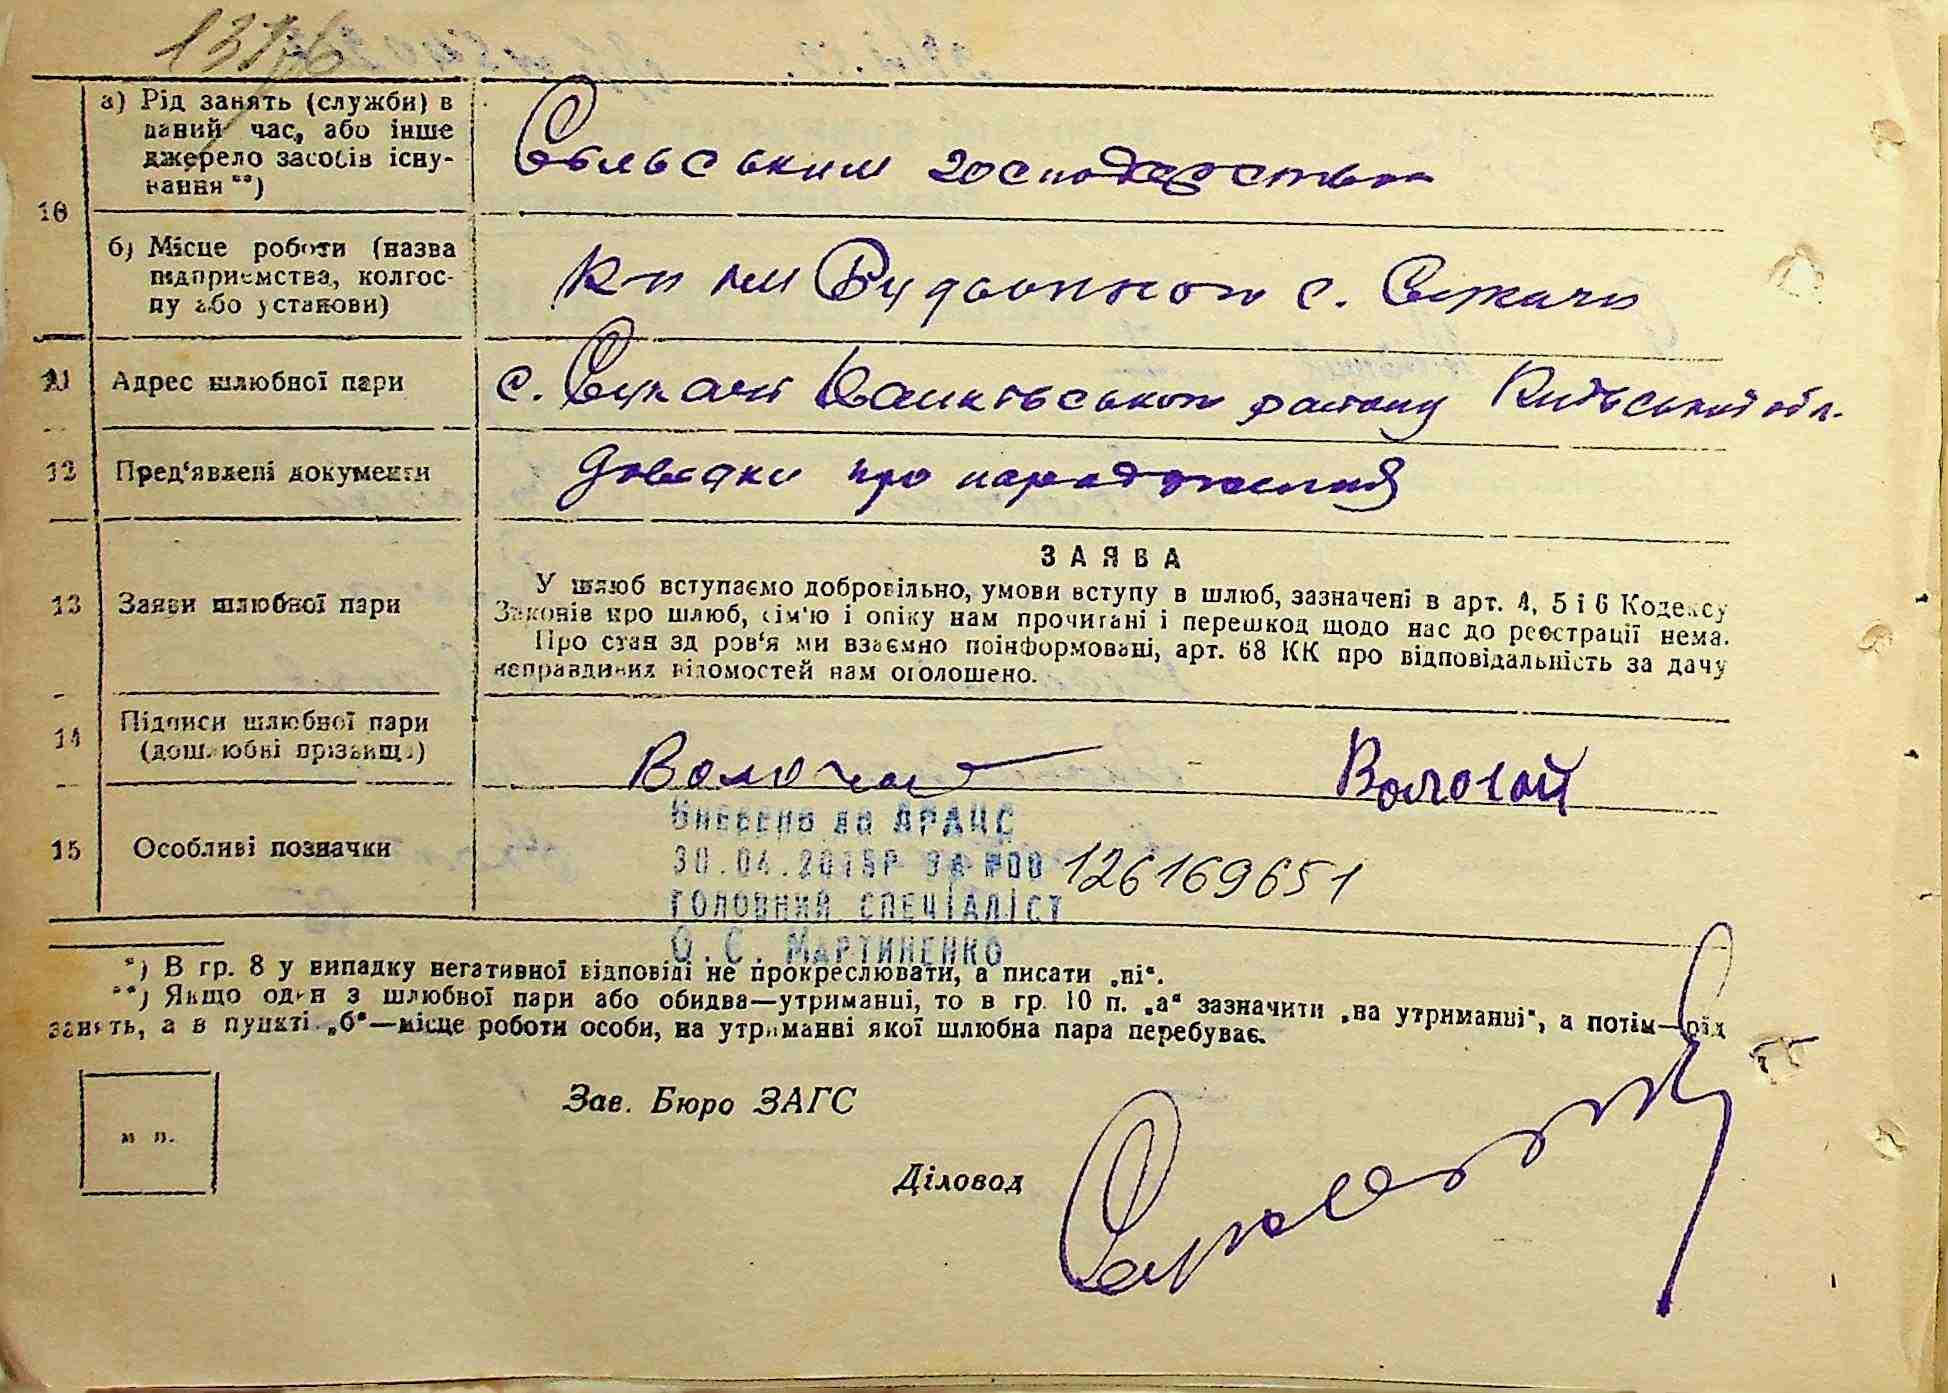 а) Рід занять (служби) в
даний час, або інше
джерело засобів існу-
вання **)
Сільським господарством
10
б) Місце роботи (назва
підприємства, колгос-
пу або установи)
К-п ім Будьонного с. Сукачи
11 Адрес шлюбної пари
с. Сукачі Іванківського району Київської обл.
12 Пред'явлені документи
довідки про народження
ЗАЯВА
13 Заяви шлюбної пари
У шлюб вступаємо добровільно, умови вступу в шлюб, зазначені в арт. 4, 5 і 6 Кодексу
Законів про шлюб, сім'ю і опіку нам прочитані і перешкод щодо нас до реєстрації нема.
Про стан здоров'я ми взаємно поінформовані, арт. 68 КК про відповідальність за дачу
неправдивих відомостей нам оголошено.
14 Підписи шлюбної пари
(дошлюбні прізвища)
Волочай Волочай
15 Особливі позначки
Внесено до ДРАЦС
30.04.2015р за №00 126169651
головний спеціаліст
О.С. Мартиненко
*) В гр. 8 у випадку негативної відповіді не прокреслювати, а писати „ні“.
**) Якщо один з шлюбної пари або обидва—утриманці, то в гр. 10 п. „а“ зазначити „на утриманні“, а потім—рід
занять, а в пункті „б“—місце роботи особи, на утриманні якої шлюбна пара перебуває.
Зав. Бюро ЗАГС
м п.
Діловод